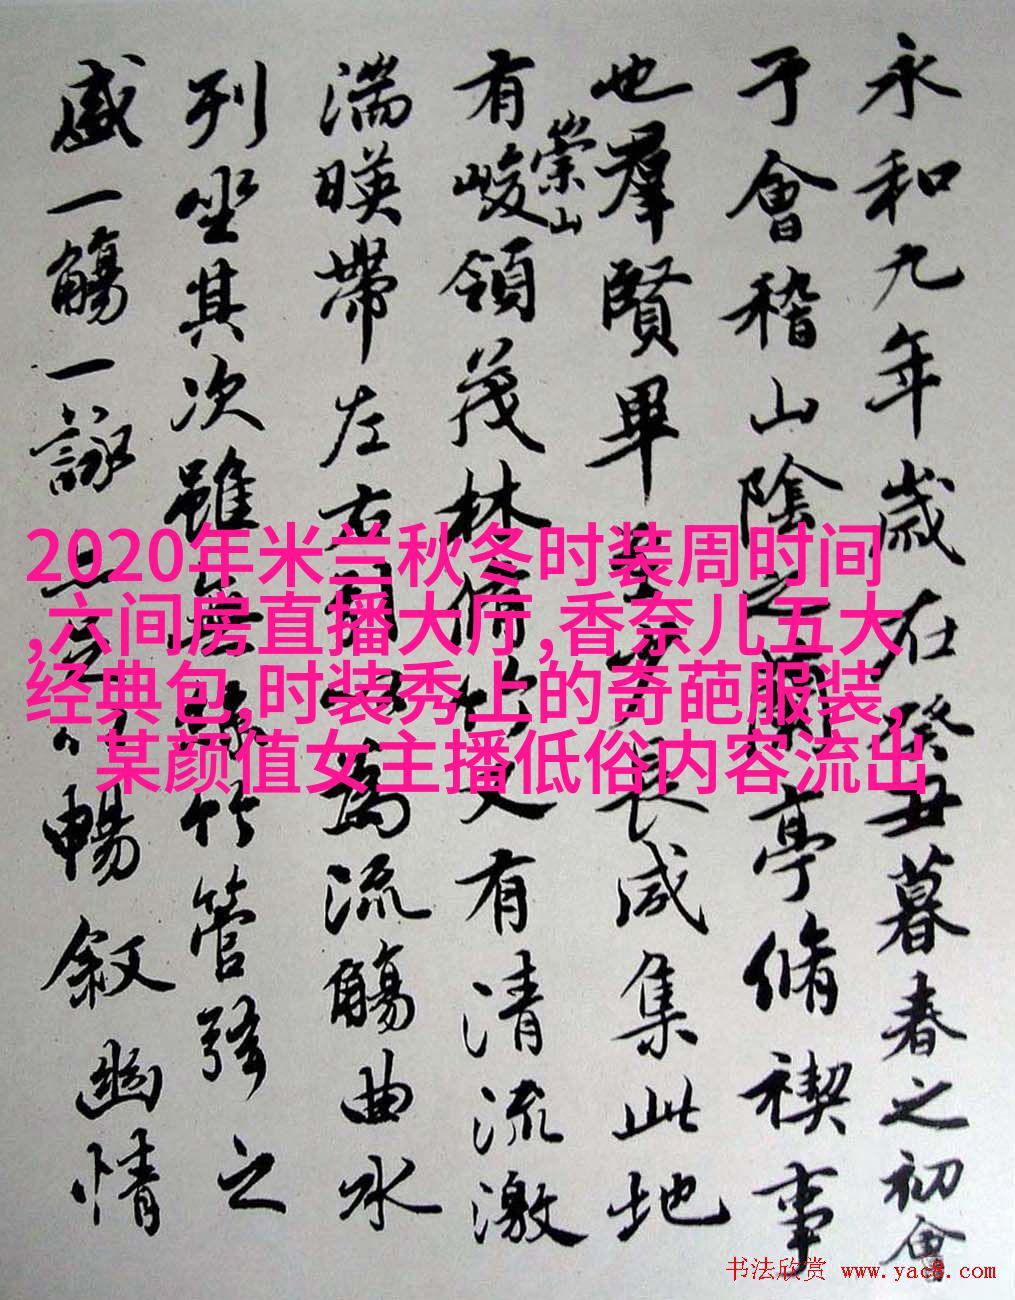 永和九年歲在癸丑暮春之初會
于會稽山陰之蘭亭脩禊事
也羣賢畢至少長咸集此地
有崇山峻領茂林脩竹又有清流激
湍暎帶左右引以為流觴曲水
列坐其次雖無絲竹管弦之
盛一觴一詠亦足以暢敘幽情
2020年米兰秋冬时装周时间
,六间房直播大厅,香奈儿五大
经典包,时装秀上的奇葩服装,
某颜值女主播低俗内容流出
书法欣赏 www.yac8.com